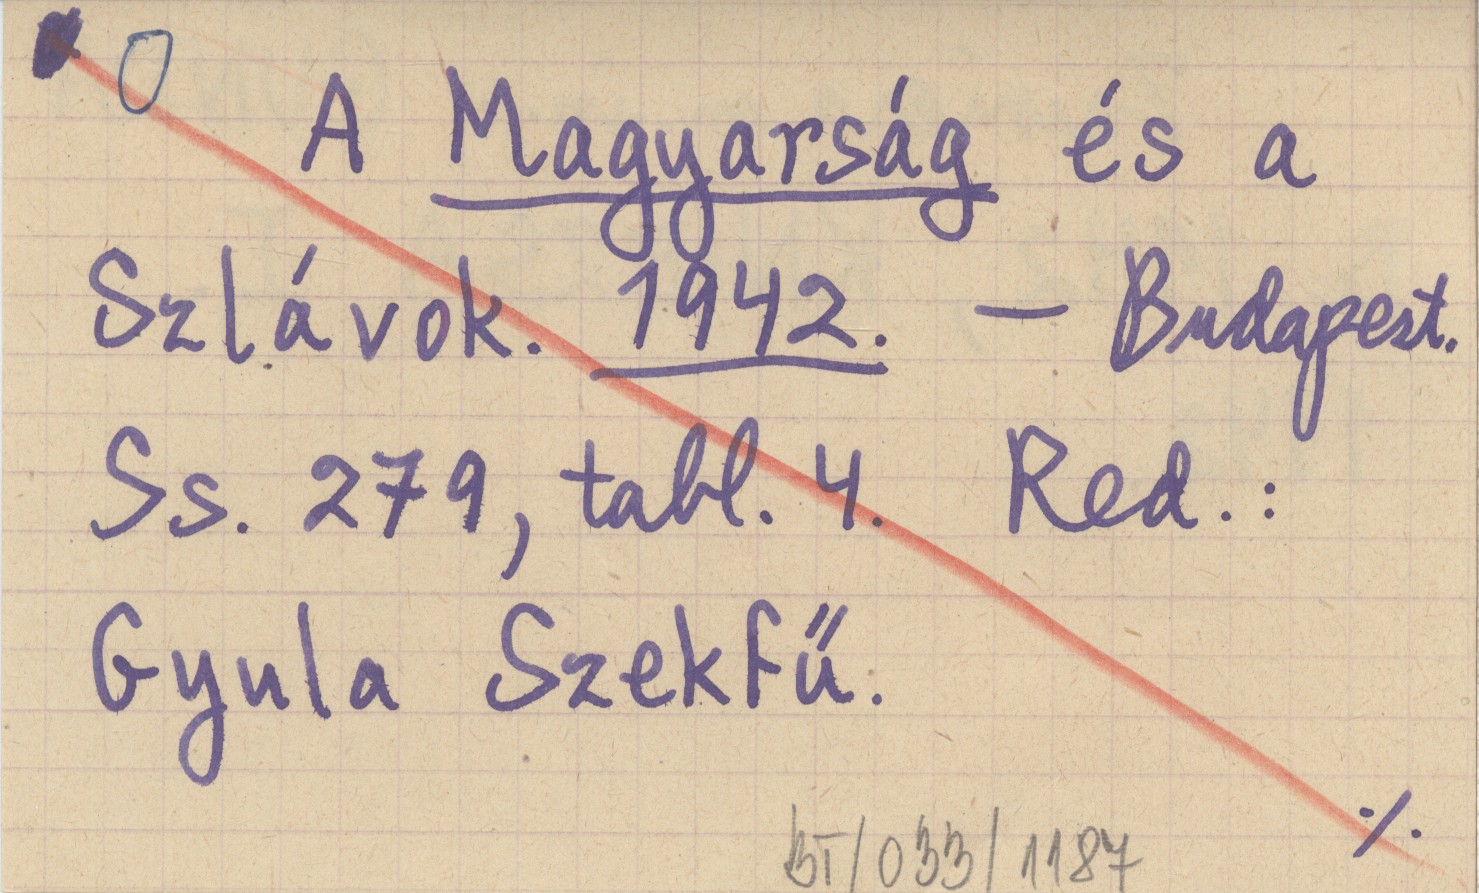 0
A Magyarság és a
Szlávok. 1942. — Budapest.
Ss. 279, tabl. 4. Red.:
Gyula Szekfű.
./.
BT/033/1187